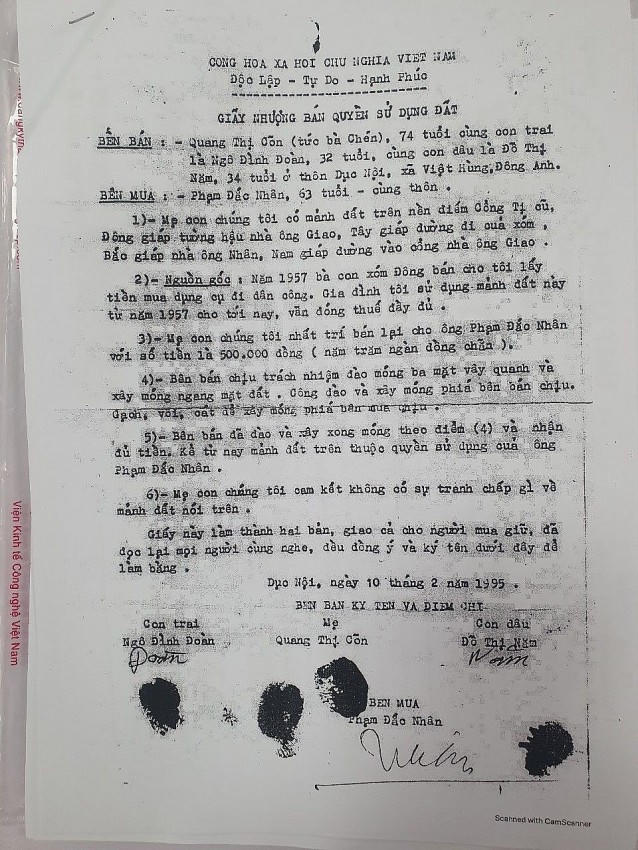 CONG HOA XA HOI CHU NGHIA VIET NAM
Độc Lập - Tự Do - Hạnh Phúc
GIẤY NHƯỢNG BÁN QUYỀN SỬ DỤNG ĐẤT
BÊN BÁN : - Quang Thị Cõn (tức bà Chén), 74 tuổi cùng con trai
là Ngô Đình Đoàn, 32 tuổi, cùng con dâu là Đỗ Thị
Năm, 34 tuổi ở thôn Dục Nội, xã Việt Hùng, Đông Anh.
BÊN MUA : - Phạm Đắc Nhân, 63 tuổi - cùng thôn .
1)- Mẹ con chúng tôi có mảnh đất trên nền điếm Cổng Tị cũ,
Đông giáp tường hậu nhà ông Giao, Tây giáp đường đi qua xóm ,
Bắc giáp nhà ông Nhân, Nam giáp đường vào cổng nhà ông Giao .
2)- Nguồn gốc : Năm 1957 bà con xóm Đông bán cho tôi lấy
tiền mua dụng cụ đi dân công. Gia đình tôi sử dụng mảnh đất này
từ năm 1957 cho tới nay, vẫn đóng thuế đầy đủ .
3)- Mẹ con chúng tôi nhất trí bán lại cho ông Phạm Đắc Nhân
với số tiền là 500.000 đồng ( năm trăm ngàn đồng chẵn ).
4)- Bên bán chịu trách nhiệm đào móng ba mặt vây quanh và
xây móng ngang mặt đất . Công đào và xây móng phía bên bán chịu.
Gạch, vôi, cát để xây móng phía bên mua chịu .
5)- Bên bán đã đào và xây xong móng theo điểm (4) và nhận
đủ tiền. Kể từ nay mảnh đất trên thuộc quyền sử dụng của ông
Phạm Đắc Nhân .
6)- Mẹ con chúng tôi cam kết không có sự tranh chấp gì về
mảnh đất nói trên .
Giấy này làm thành hai bản, giao cả cho người mua giữ, đã
đọc lại mọi người cùng nghe, đều đồng ý và ký tên dưới đây để
làm bằng .
Dục Nội, ngày 10 tháng 2 năm 1995 .
BEN BAN KY TEN VA DIEM CHI
Con trai Mẹ Con dâu
Ngô Đình Đoàn Quang Thị Cõn Đỗ Thị Năm
Đoàn Năm
BEN MUA
Phạm Đắc Nhân
Nhân
Viện Kinh tế Công nghệ Việt Nam
Scanned with CamScanner